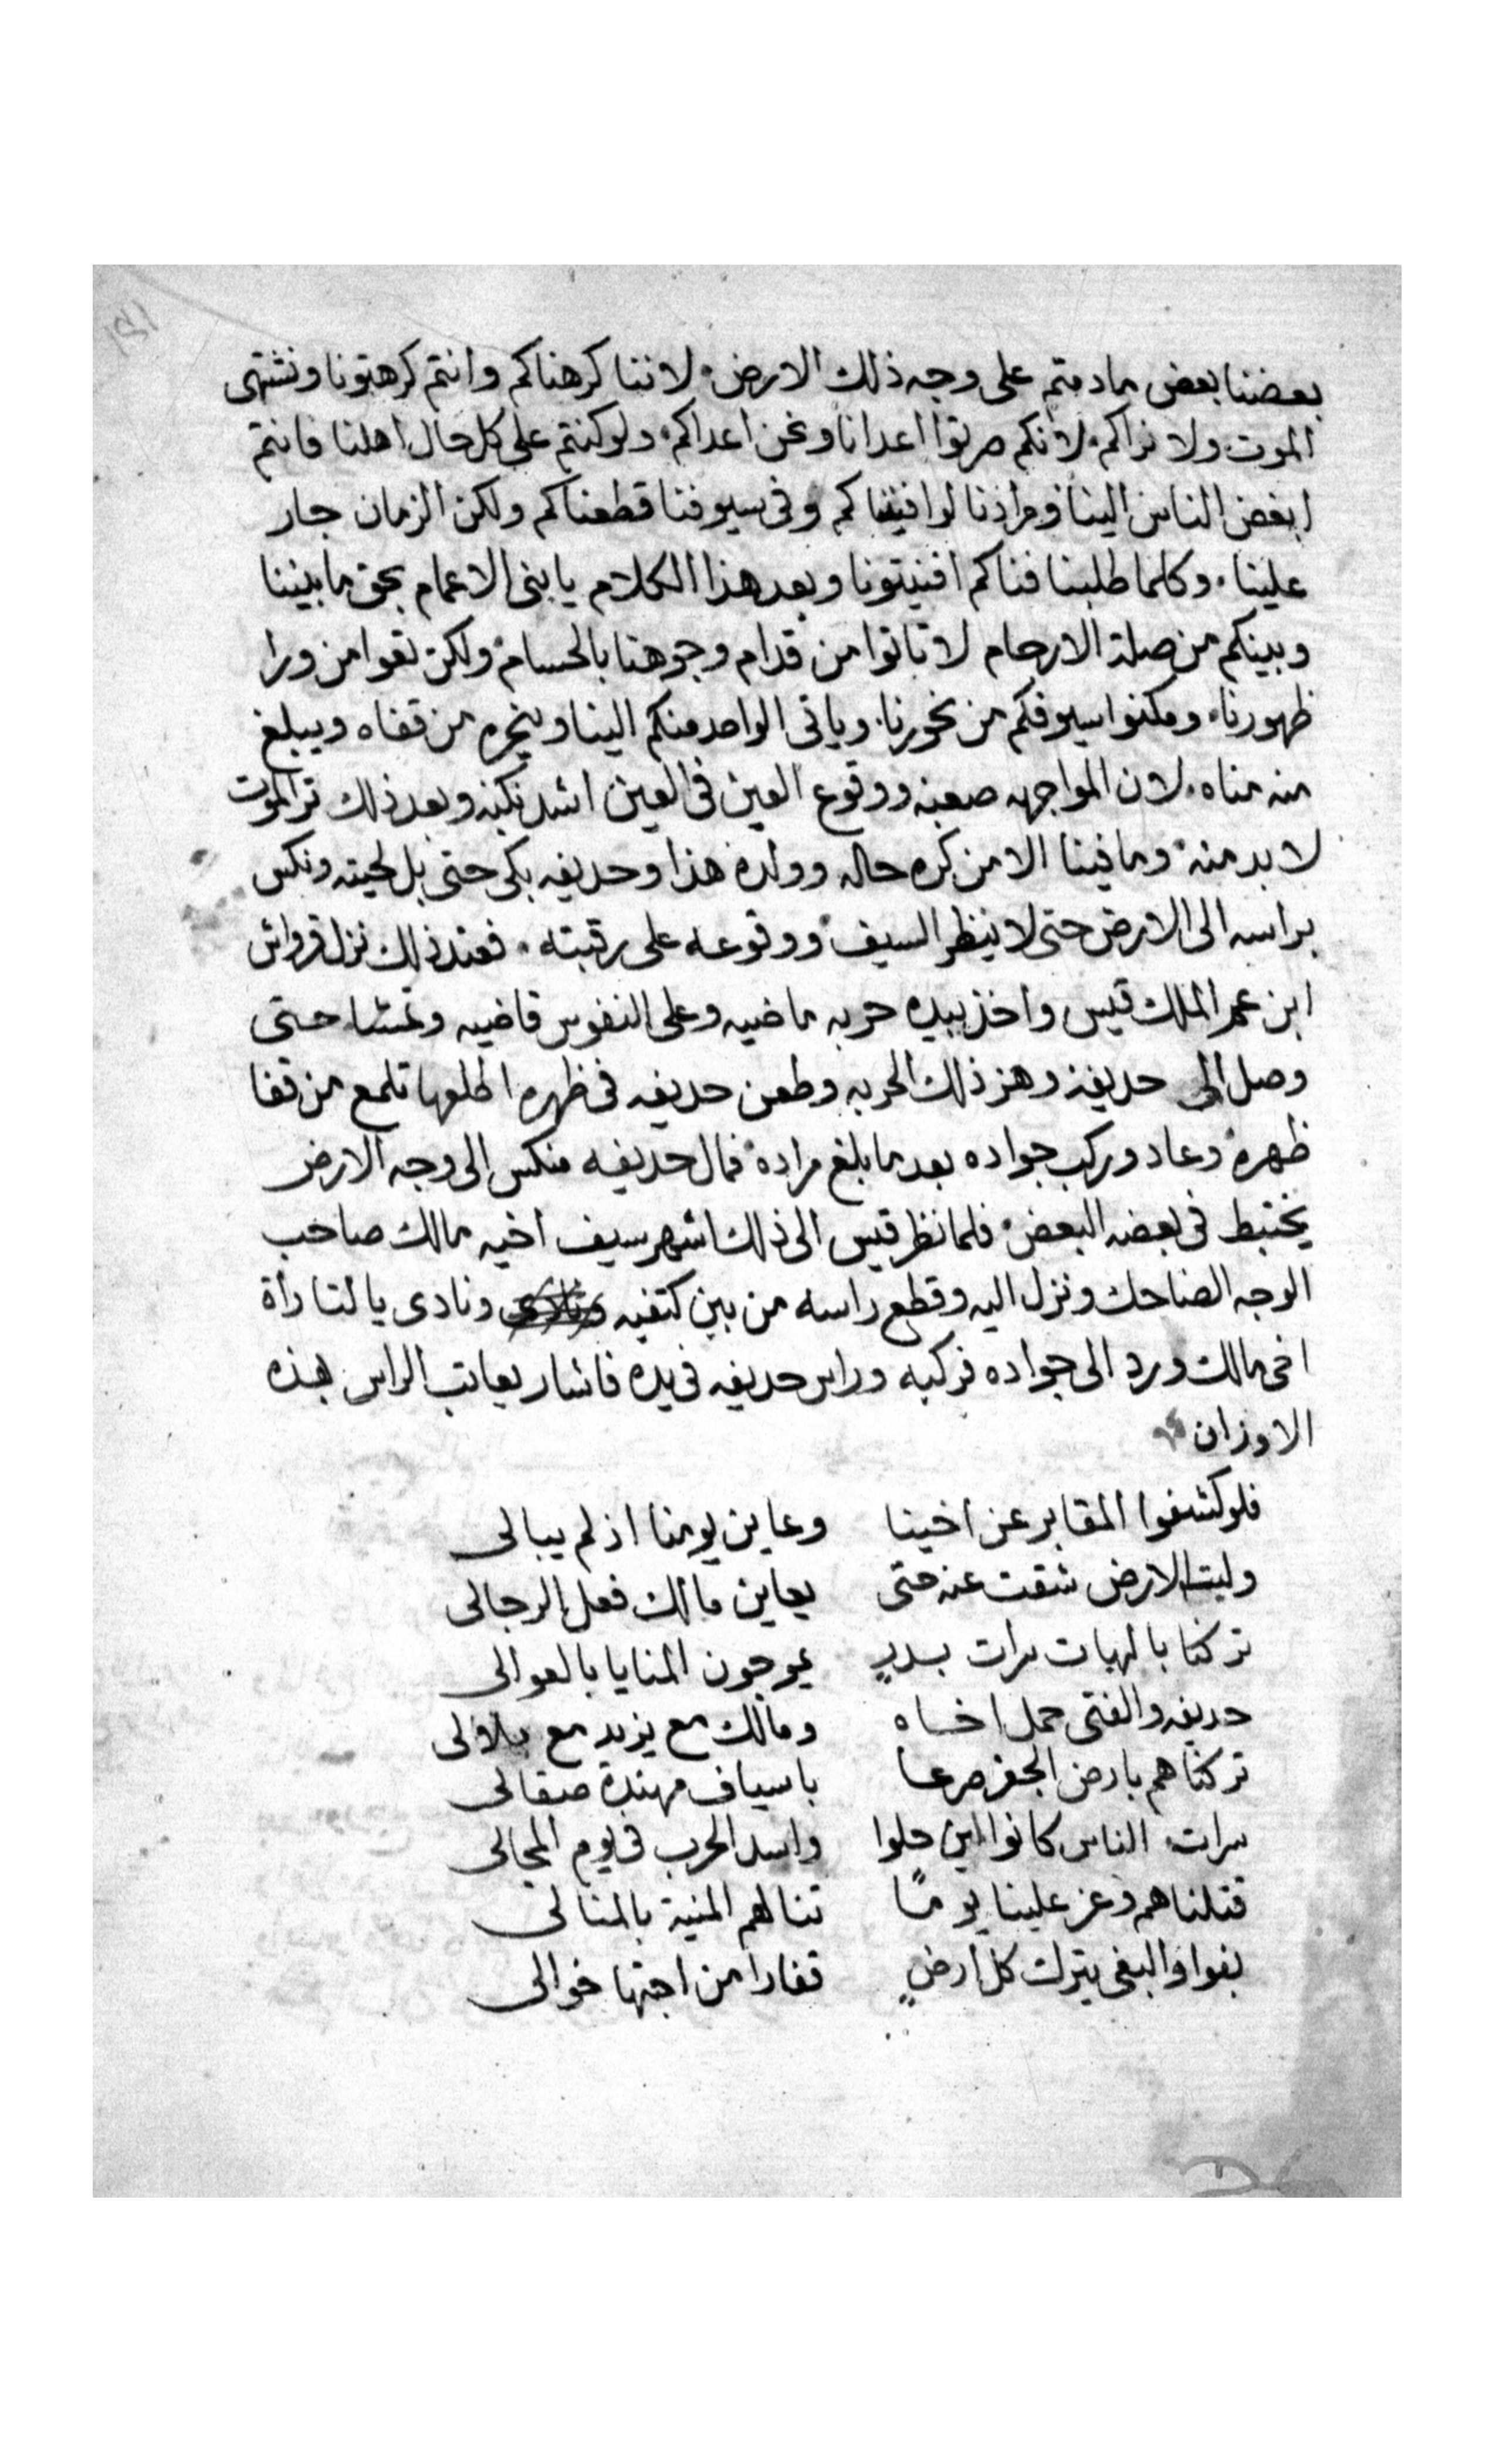 بعضنا بعض مادمتم على وجه ذلك الارض. لاننا كرهناكم وانتم كرهتونا ونشتهى
الموت ولا نراكم. لانكم صرتوا اعدانا ونحن اعداكم. ولو كنتم على كل حال اهلنا فانتم
ابغض الناس الينا ومرادنا لو افنيناكم وفى سيوفنا قطعناكم ولكن الزمان جار
علينا. وكلما طلبنا فناكم افنيتونا وبعد هذا الكلام يا بنى الاعمام بحق ما بيننا
وبينكم من صلة الارحام لا تاتوا من قدام وجوهنا بالحسام ولكن تعوا من ورا
ظهورنا. ومكنوا سيوفكم من نحورنا. وياتى الواحد منكم الينا وينحره من قفاه ويبلغ
منه مناه. لان المواجهه صعبه ووقوع العين فى العين اشد نكبه وبعد ذلك تر الموت
لا بد منه. وما فينا الا من كره حاله وولده هذا وحديفه بكى حتى بل لحيته ونكس
براسه الى الارض حتى لا ينظر السيف ووقوعه على رقبته. فعند ذلك نزل قرواش
ابن عم الملك قيس واخذ بيده حربه ماضيه وعلى النفوس قاضيه وتمشا حتى
وصل الى حديفه وهز ذلك الحربه وطعن حديفه فى ظهره اطلعها تلمع من قفا
ظهره وعاد وركب جواده بعد ما بلغ مراده. فمال حديفه منكس الى وجه الارض
يختبط فى بعضه البعض. فلما نظر قيس الى ذلك اشهر سيف اخيه مالك صاحب
الوجه الضاحك ونزل اليه وقطع راسه من بين كتفيه ونادى يا لتارأة
اخى مالك ورد الى جواده فركبه وراس حديفه فى يده فاشار يعاتب الراس بهذه
الاوزان
فلو كشفوا المقابر عن اخينا وعاين يومنا اذ لم يبالى
وليت الارض شقت عنه حتى يعاين مالك فعل الرجالى
تركنا بالهبات سرات بدرٍ يموجون المنايا بالعوالى
حديفه والفتى حمل اخاه ومالك مع يزيد مع بلالى
تركناهم بارض الجفر صرعا باسياف مهندة صقالى
سرات الناس كانوا اين حلوا واسد الحرب فى يوم المجالى
قتلناهم وعز علينا يومًا تنالهم المنية بالمنالى
بغوا والبغى يترك كل ارضٍ قفارا من اجنها خوالى